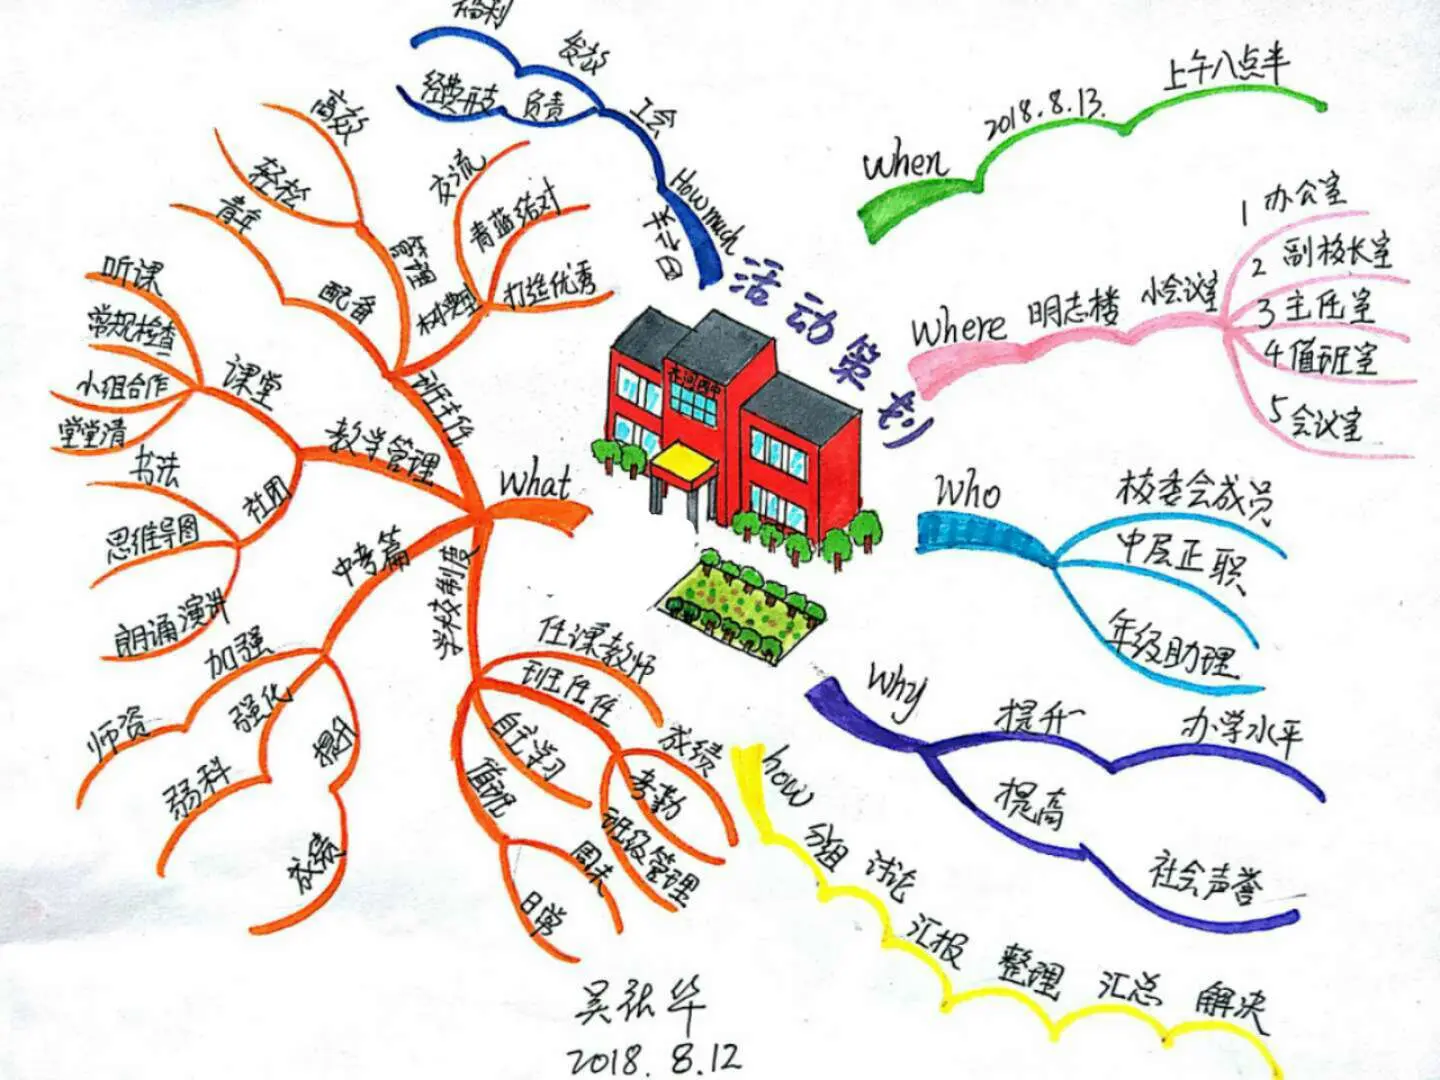 活动策划
When
2018.8.13.
上午八点半
Where
明志楼
小会议室
1 办公室
2 副校长室
3 主任室
4 值班室
5 会议室
Who
校委会成员
中层正职
年级助理
Why
提升
办学水平
提高
社会声誉
how
分组
讨论
汇报
整理
汇总
解决
What
学校制度
任课教师
班主任
成绩
考勤
班级管理
自主学习
值班
周末
日常
中考篇
加强
师资
强化
弱科
提升
成绩
教学管理
课堂
听课
常规检查
小组合作
堂堂清
社团
书法
思维导图
朗诵演讲
班主任
配备
青年
管理
轻松
高效
交流
青蓝结对
打造优秀
How much
工会
发放
福利
负责
经费开支
吴张华
2018.8.12